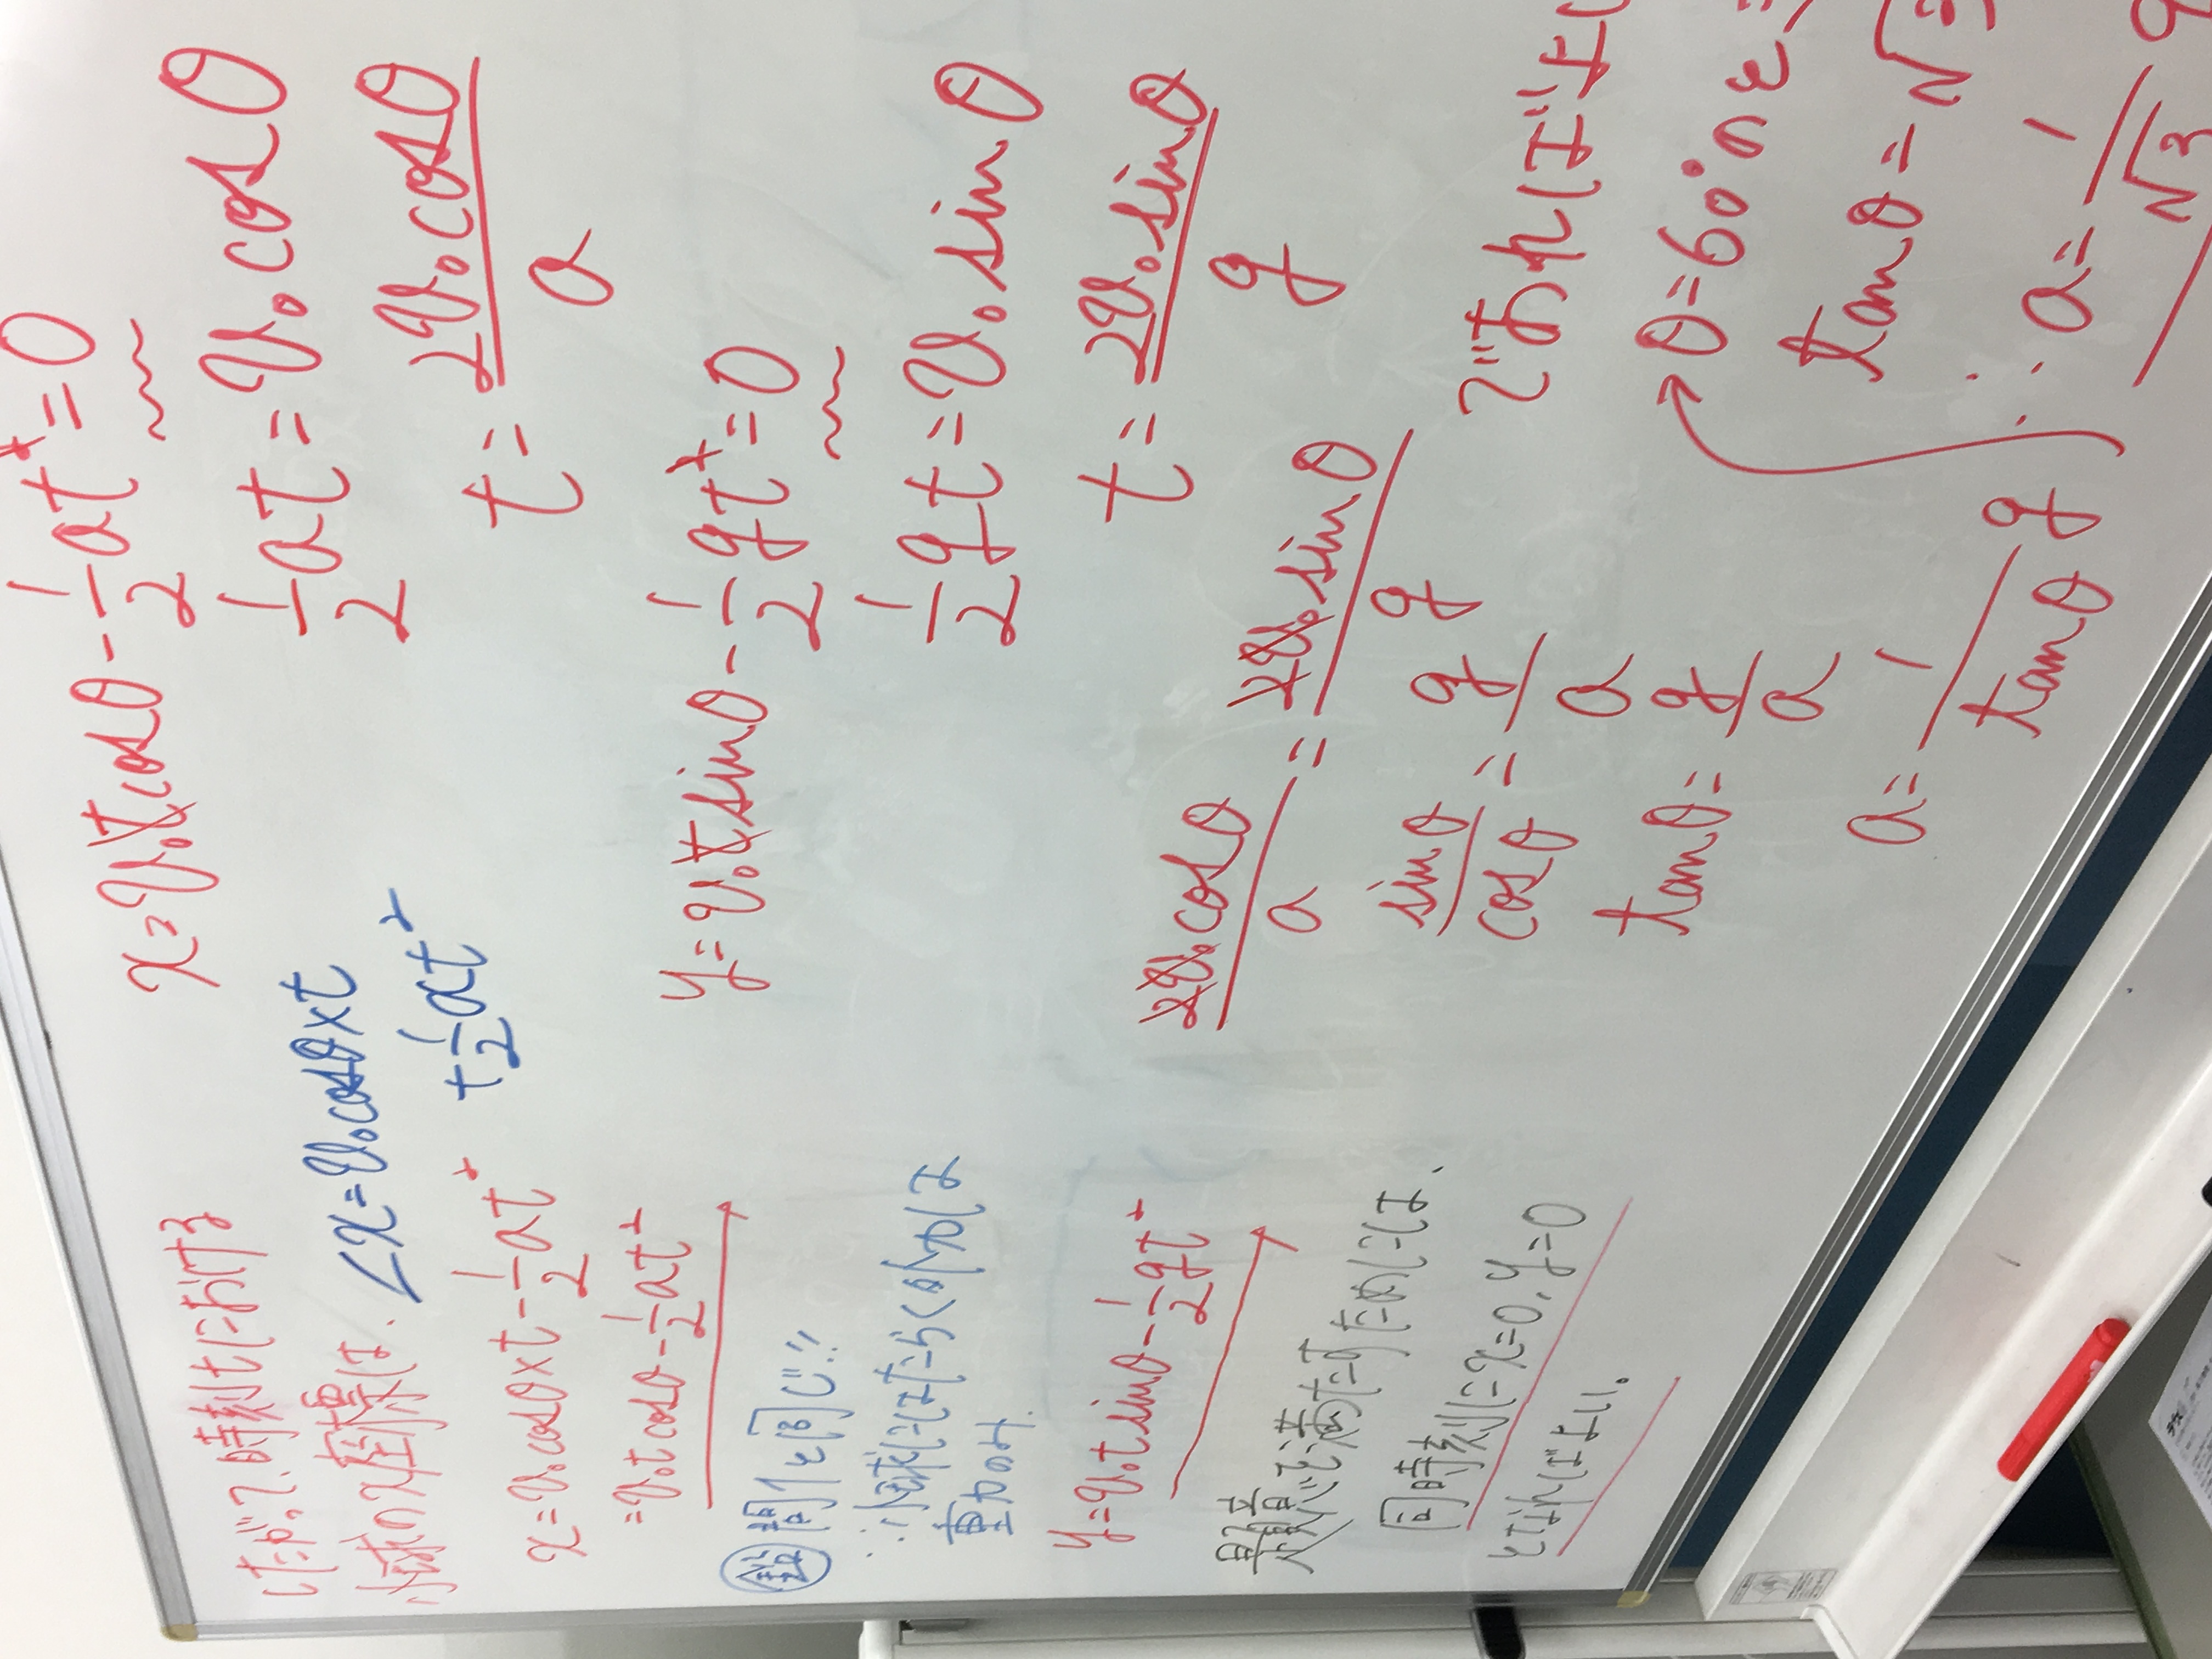 したがって、時刻tにおける
小球のx座標は、
<x=v₀cosθ×t
+1/2at²
x=v₀cosθ×t-1/2at²
=v₀tcosθ-1/2at²
問1と同じ!!
∴小球にはたらく力は
重力のみ
y=v₀tsinθ-1/2gt²
同時刻にx=0,y=0
となればよい。
x=v₀tcosθ-1/2at²=0
1/2at=v₀cosθ
t=2v₀cosθ/a
y=v₀tsinθ-1/2gt²=0
1/2gt=v₀sinθ
t=2v₀sinθ/g
2v₀cosθ/a=2v₀sinθ/g
sinθ/cosθ=g/a
tanθ=g/a
a=1/tanθ g
であれば
θ=60°のと
tanθ=√3
∴a=1/√3 g